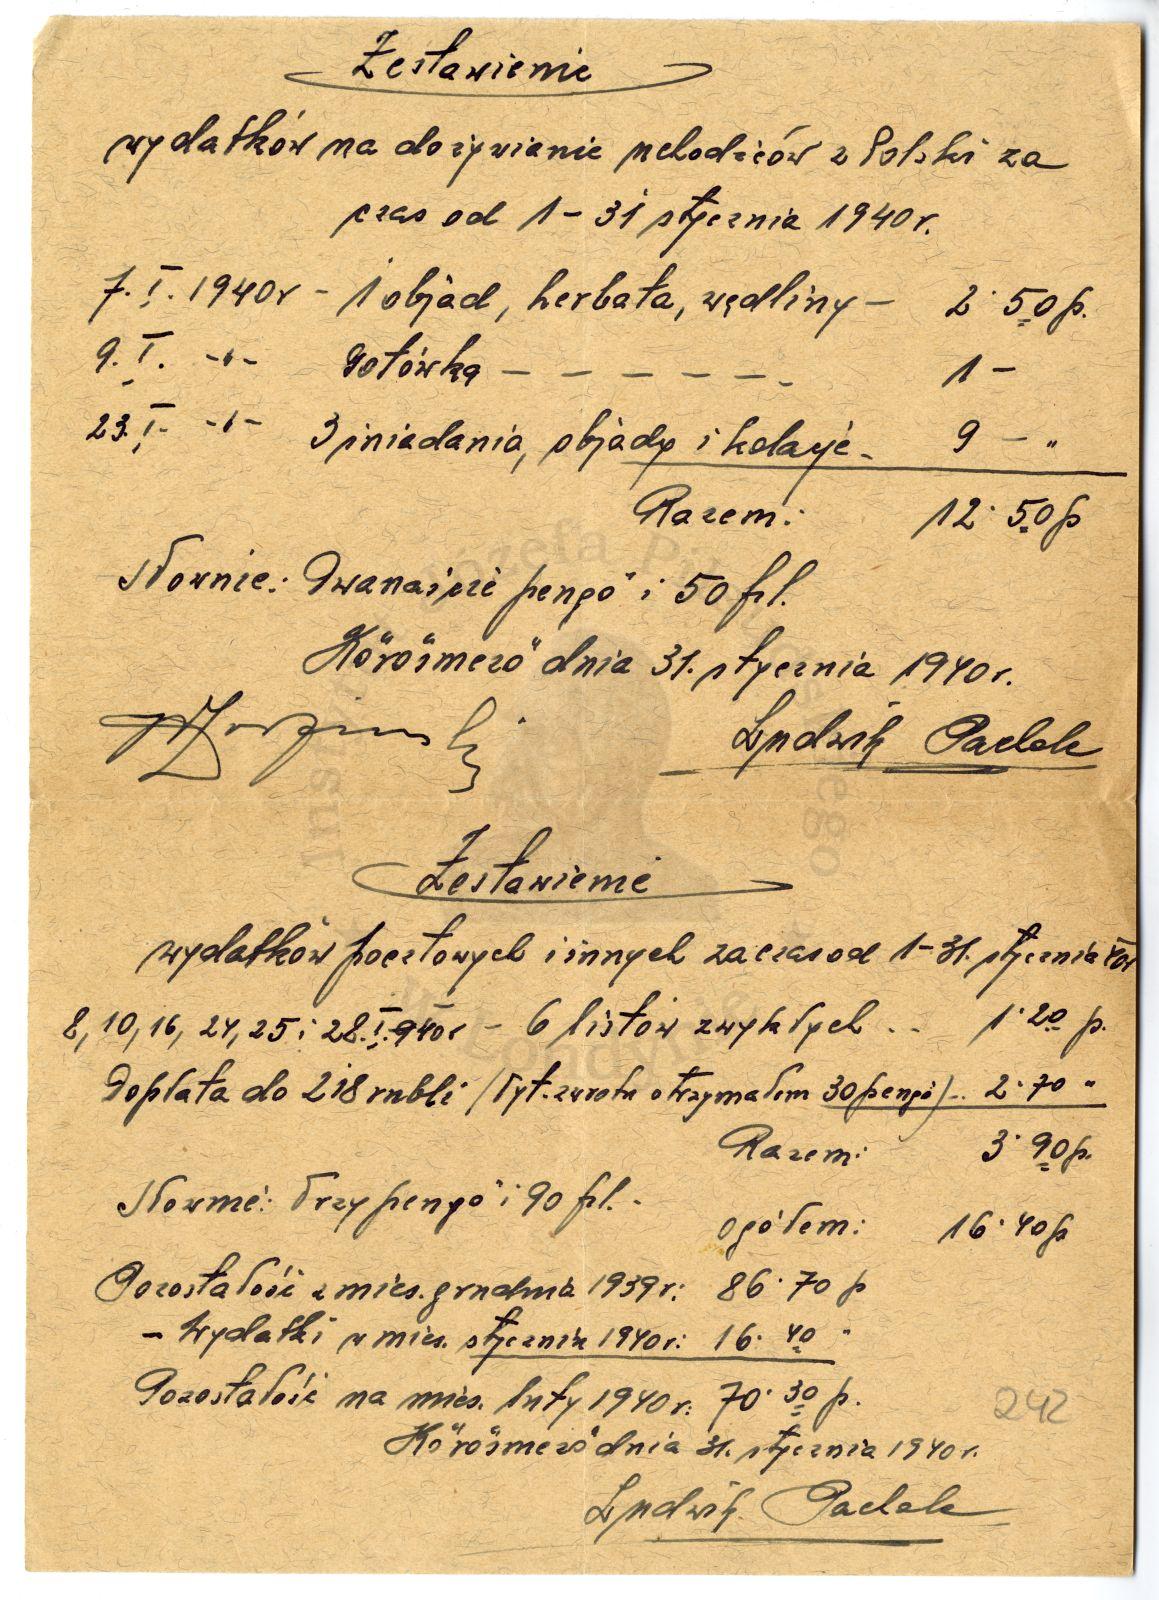 Zestawienie
wydatków na dożywianie uchodźców z Polski za
czas od 1 – 31 stycznia 1940 r.
7. I. 1940 r – 1 objad, herbata, wędliny – 2·50 p.
9. I. -"- gotówką – – – – – – 1 –
23. I. -"- 3 śniadania, objady i kolacje – 9 – "
Razem: 12·50 p
Słownie: Dwanaście pengö i 50 fil.
Körösmezö dnia 31. stycznia 1940 r.
Ludwik Pachole
Zestawienie
wydatków pocztowych i innych za czas od 1 – 31. stycznia 40 r
8, 10, 16, 24, 25 i 28. I. 940 r – 6 listów zwykłych . . 1·20 p.
Dopłata do 218 rubli (tyt. zwrotu otrzymałem 30 pengö) – . 2·70 "
Razem: 3·90 p.
Słownie: Trzy pengö i 90 fil. –
ogółem: 16·40 p
Pozostałość z mies. grudnia 1939 r: 86·70 p
– Wydatki w mies. stycznia 1940 r: 16·40 "
Pozostałość na mies. luty 1940 r: 70·30 p.
242
Körösmezö dnia 31. stycznia 1940 r.
Ludwik Pachole